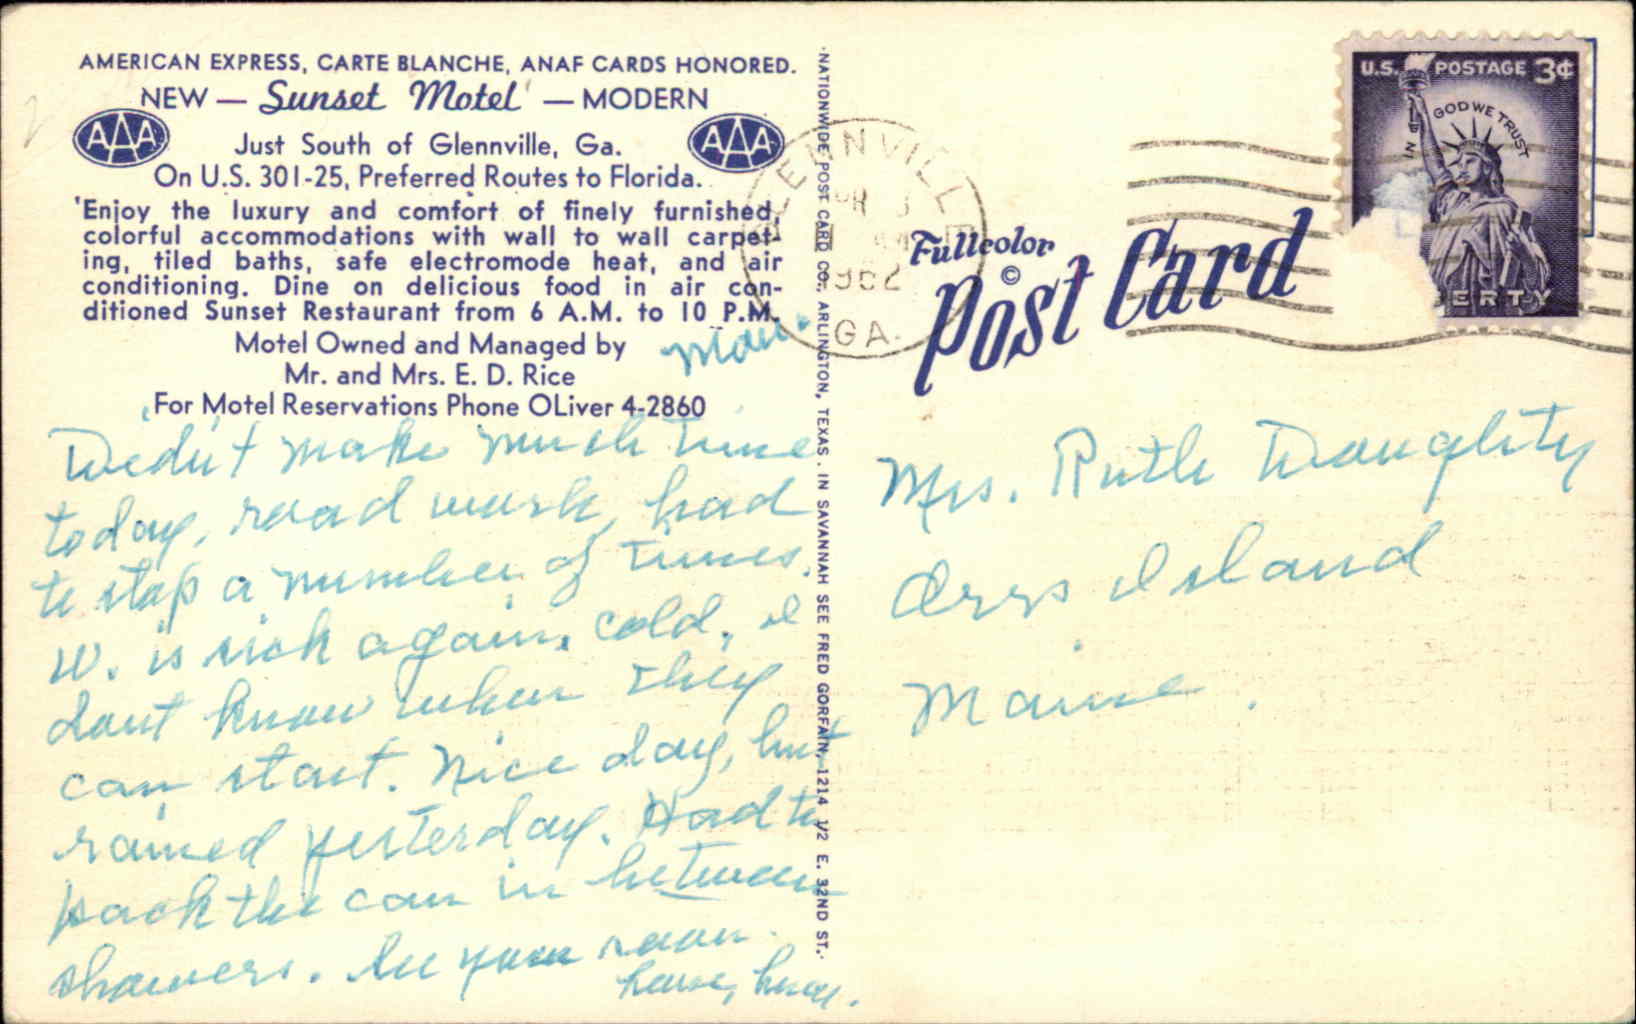 AMERICAN EXPRESS, CARTE BLANCHE, ANAF CARDS HONORED.
NEW — Sunset Motel — MODERN
AAA
AAA
Just South of Glennville, Ga.
On U.S. 301-25, Preferred Routes to Florida.
'Enjoy the luxury and comfort of finely furnished,
colorful accommodations with wall to wall carpet-
ing, tiled baths, safe electromode heat, and air
conditioning. Dine on delicious food in air con-
ditioned Sunset Restaurant from 6 A.M. to 10 P.M.
Motel Owned and Managed by
Mr. and Mrs. E. D. Rice
For Motel Reservations Phone OLiver 4-2860
Mon.
Didn't make much time
today, road work, had
to stop a number of times.
W. is sick again, cold, I
dont know when they
can start. Nice day, but
rained yesterday. Had to
pack the car in between
showers. See you soon.
Love,
NATIONWIDE POST CARD CO., ARLINGTON, TEXAS. IN SAVANNAH SEE FRED GORFAIN, 1214 1/2 E. 32ND ST.
GLENNVILLE
1962
GA.
Fullcolor
©
Post Card
U.S. POSTAGE 3¢
IN GOD WE TRUST
ERTY
Mrs. Ruth Doughty
Orrs Island
Maine.